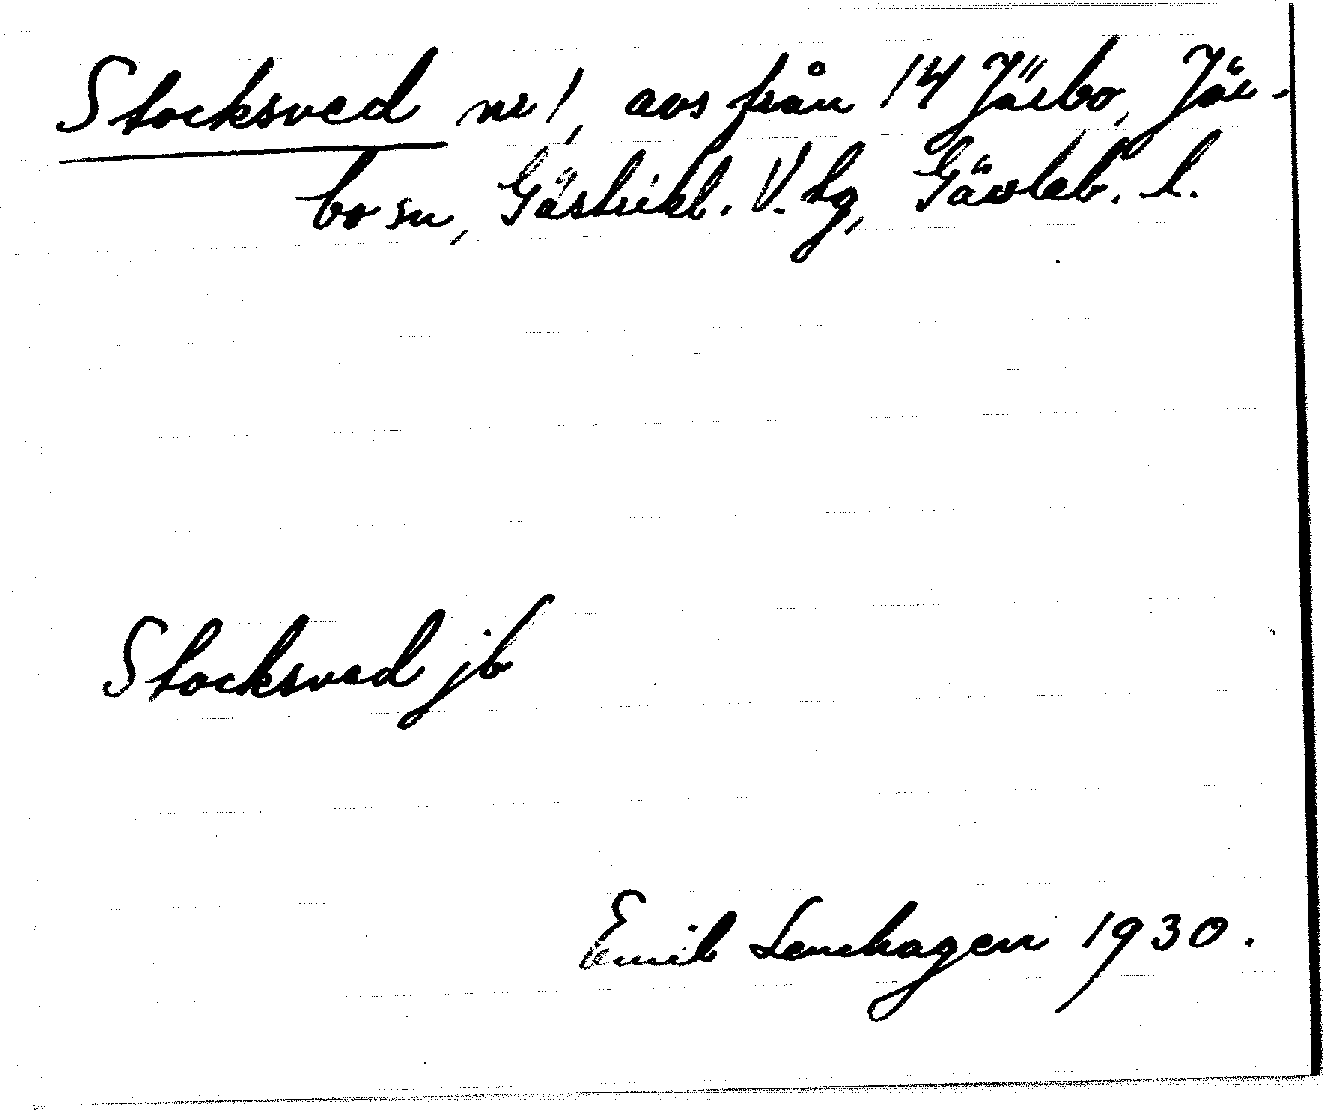 Stocksved nr 1, avs från 14 Järbo, Jär-
bo sn, Gästrikl. V. tg, Gävleb. l.
Stocksved jb
Emil Lenhagen 1930.